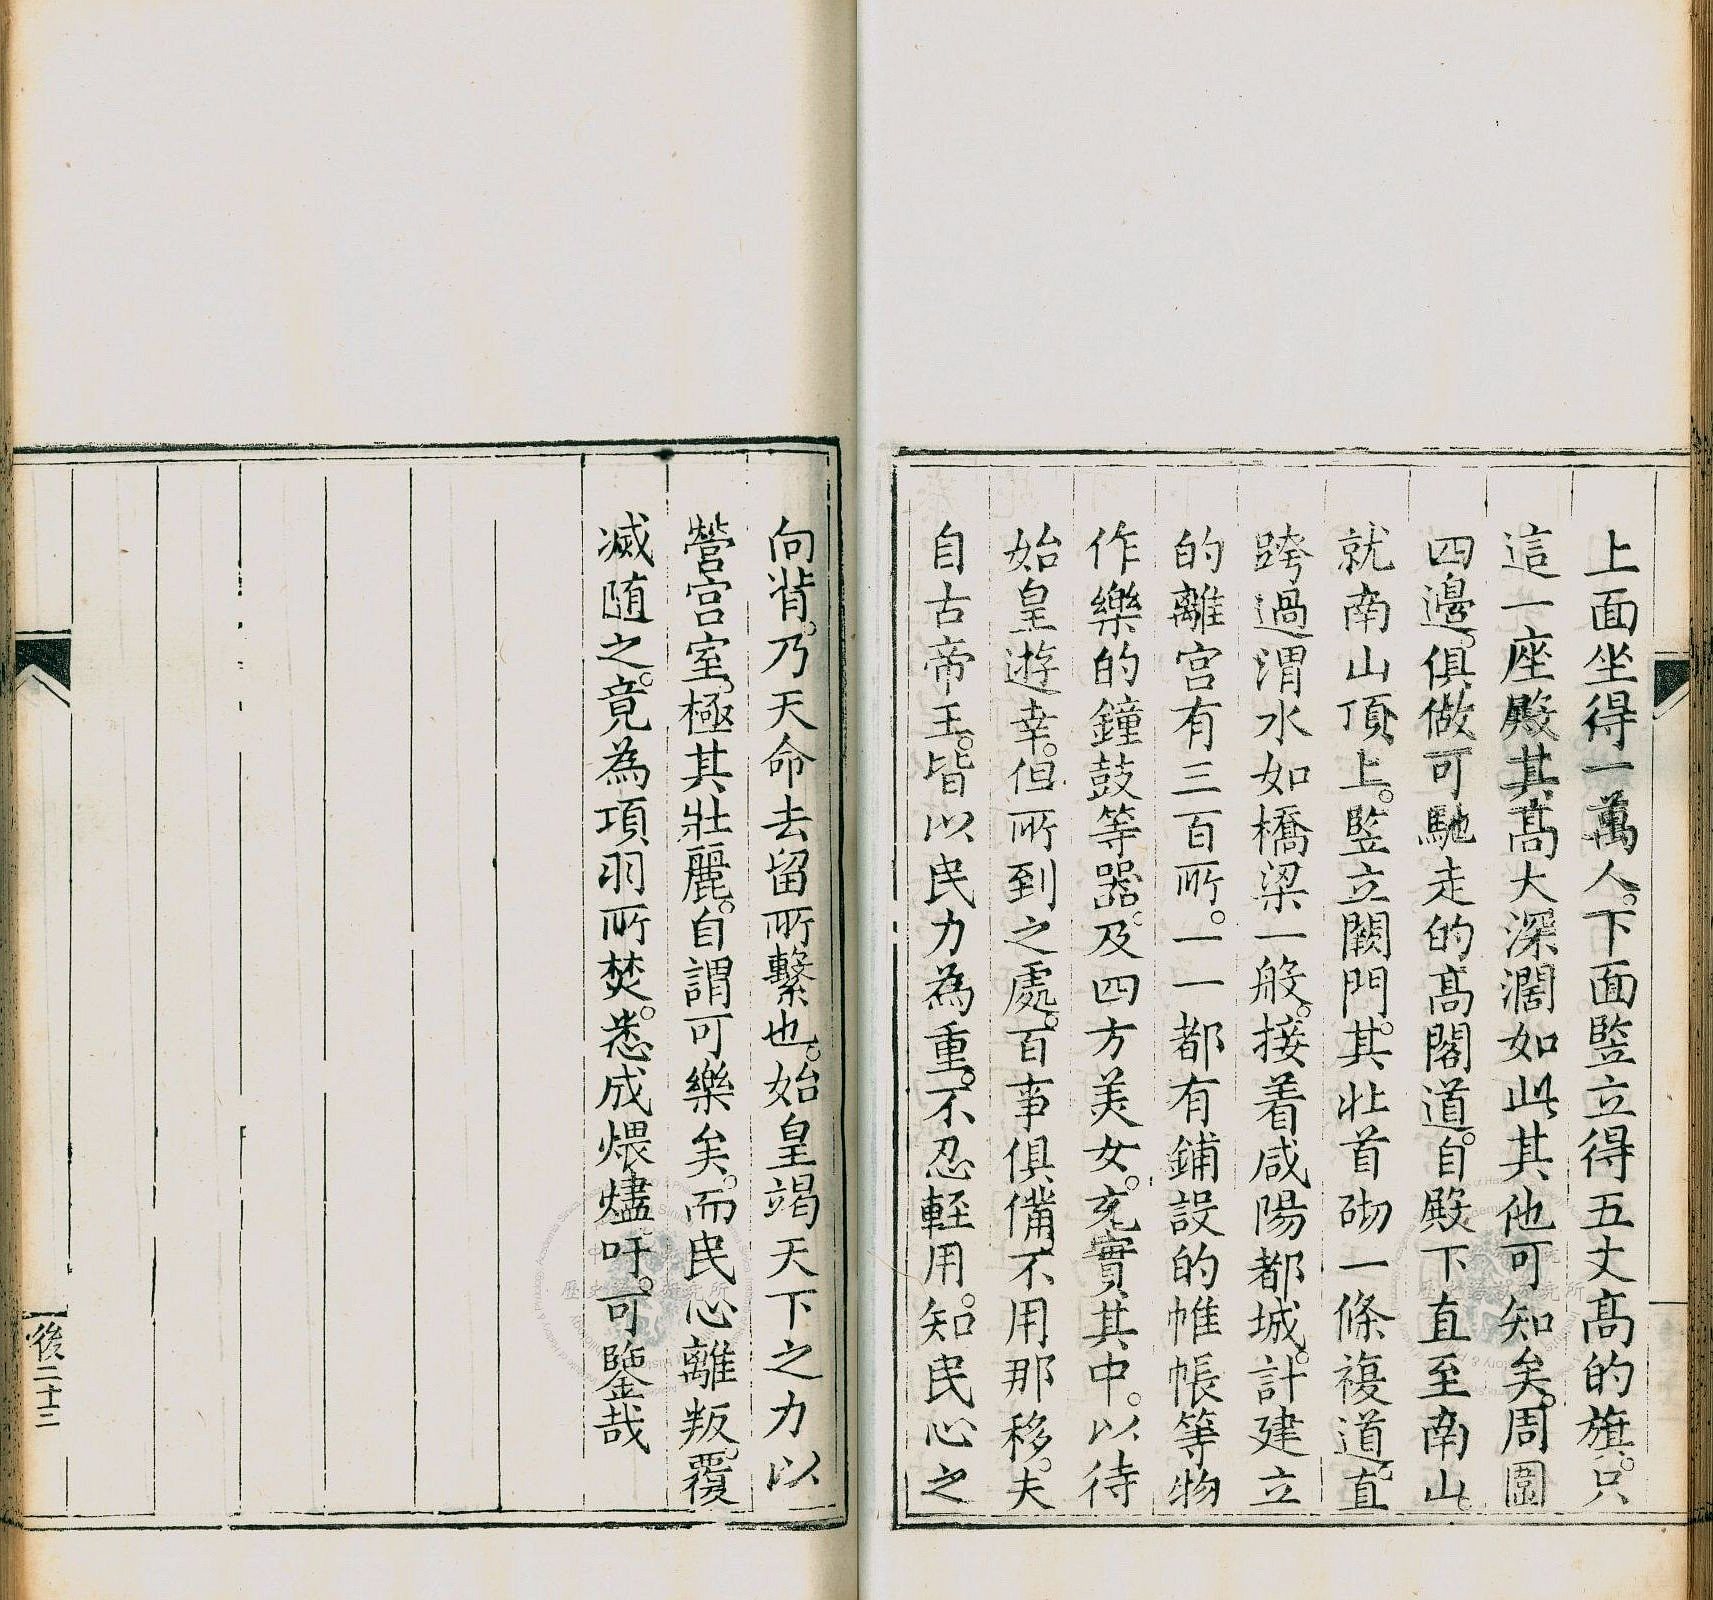 上面坐得一萬人。下面竪立得五丈髙的旗。只
這一座殿其髙大深濶如此其他可知矣。周圍
四邊。俱做可馳走的髙閣道。自殿下直至南山。
就南山頂上。竪立闕門。其北首砌一條複道。直
跨過渭水如橋梁一般。接着咸陽都城。計建立
的離宫有三百所。一一都有鋪設的帷帳等物
作樂的鐘鼓等器。及四方美女。充實其中。以待
始皇遊幸。但所到之處。百事俱備不用那移。夫
自古帝王。皆以民力為重。不忍輕用。知民心之
向背。乃天命去留所繫也。始皇竭天下之力以
營宫室。極其壯麗。自謂可樂矣。而民心離叛。覆
滅随之。竟為項羽所焚。悉成煨燼。吁。可鑒哉
後二十二